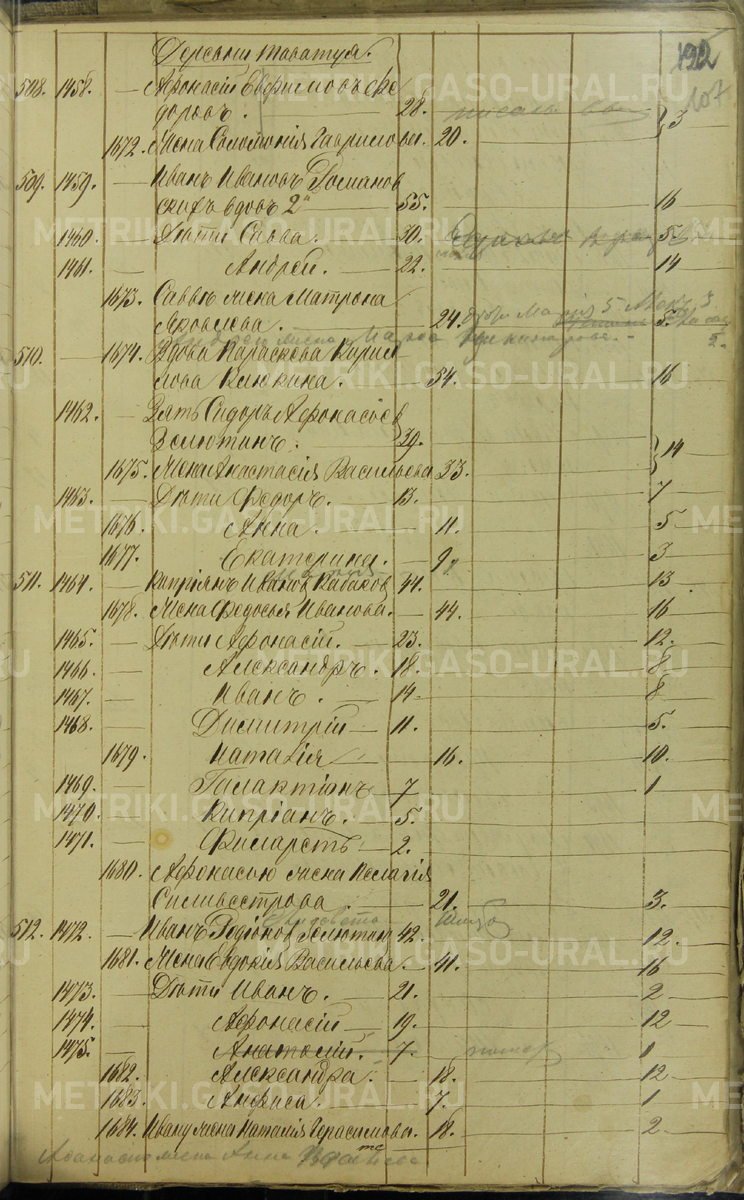 192
107
Деревни Таватуя.
508. 1458. — Афонасій Евфимовъ Ѳе
доровъ. 28. 3
1672. Жена Соломонія Гаврилова. 20.
509. 1459. — Иванъ Ивановъ Романов
скихъ вдовъ 2й 55. 16
1460. — Дѣти Савва. — 30. 5.
1461. — Андрей. — 22. 14
1673. Саввы жена Матрона
Яковлева. — 24. 5.
510. — 1674. Вдова Параскева Кирил
лова Клюкина. — 54. 16
1462. — Зять Сидоръ Афонасьев
Золютинъ. — 39. 14
1675. Жена Анастасія Васильева 33.
1463. — Дѣти Ѳедоръ. — 13. 7
1676. Анна. — 11. 5
1677. Екатерина. 9. 3
511. 1464. — Кипріянъ Иванов Кабаков 44. 13
1678. Жена Ѳедосья Иванова. — 44. 16
1465. — Дѣти Афонасій. — 23. 12.
1466. — Александръ. 18. 8
1467. — Иванъ. — 14 8
1468. — Димитрій — 11. 5.
1679. Наталія — 16. 10.
1469. — Галактіонъ 7 1
1470. — Кипріанъ. 5.
1471. — Филаретъ 2.
1680. Афонасью жена Пелагія
Силивестрова. — 21. 3.
512. 1472. — Иванъ Родіонов Золютин 42. 12.
1681. Жена Евдокія Васильева. — 41. 16
1473. — Дѣти Иванъ. — 21. 2
1474. — Афонасій — 19. 12
1475. — Анатолій. 7. помер 1
1682. Александра. 18. 12
1683. Анфиса. 7. 1
1684. Ивану жена Наталія Герасимова. 18. 2
Афанасію жена Анна
METRIKI.GASO-URAL.RU